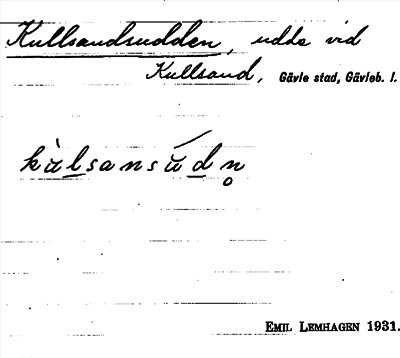 Kullsandsudden, udde vid
Kullsand, Gävle stad, Gävleb. l.
kùlsansúdn̥
EMIL LEMHAGEN 1931.